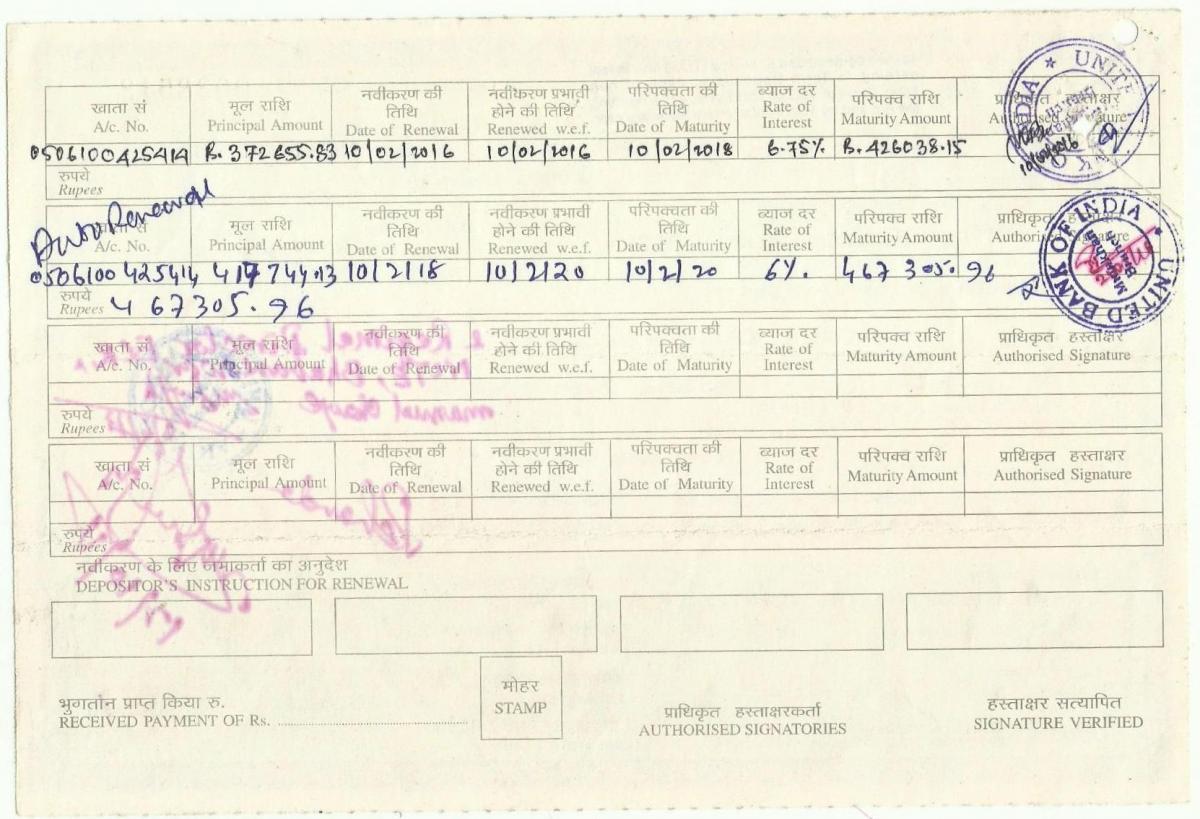 खाता सं मूल राशि नवीकरण की तिथि नवीकरण प्रभावी होने की तिथि परिपक्वता की तिथि ब्याज दर परिपक्व राशि प्राधिकृत हस्ताक्षर
A/c. No. Principal Amount Date of Renewal Renewed w.e.f. Date of Maturity Rate of Interest Maturity Amount Authorised Signature
0506100425414 Rs. 372655.83 10/02/2016 10/02/2016 10/02/2018 6.75% Rs. 426038.15
10/02/2016
रुपये
Rupees
Auto Renewal
खाता सं मूल राशि नवीकरण की तिथि नवीकरण प्रभावी होने की तिथि परिपक्वता की तिथि ब्याज दर परिपक्व राशि प्राधिकृत हस्ताक्षर
A/c. No. Principal Amount Date of Renewal Renewed w.e.f. Date of Maturity Rate of Interest Maturity Amount Authorised
0506100425414 417744.13 10/2/18 10/2/20 10/2/20 6% 467305.96
UNITED BANK OF INDIA
रुपये
Rupees 467305.96
खाता सं मूल राशि नवीकरण की तिथि नवीकरण प्रभावी होने की तिथि परिपक्वता की तिथि ब्याज दर परिपक्व राशि प्राधिकृत हस्ताक्षर
A/c. No. Principal Amount Date of Renewal Renewed w.e.f. Date of Maturity Rate of Interest Maturity Amount Authorised Signature
रुपये
Rupees
खाता सं मूल राशि नवीकरण की तिथि नवीकरण प्रभावी होने की तिथि परिपक्वता की तिथि ब्याज दर परिपक्व राशि प्राधिकृत हस्ताक्षर
A/c. No. Principal Amount Date of Renewal Renewed w.e.f. Date of Maturity Rate of Interest Maturity Amount Authorised Signature
रुपये
Rupees
नवीकरण के लिए जमाकर्ता का अनुदेश
DEPOSITOR'S INSTRUCTION FOR RENEWAL
भुगतान प्राप्त किया रु.
RECEIVED PAYMENT OF Rs. ..........
मोहर
STAMP
प्राधिकृत हस्ताक्षरकर्ता
AUTHORISED SIGNATORIES
हस्ताक्षर सत्यापित
SIGNATURE VERIFIED